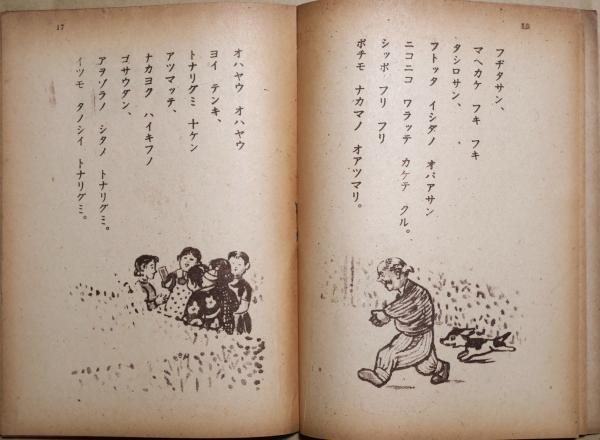 フヂタサン、
マヘカケ フキ フキ
タシロサン、
フトッタ イシダノ オバアサン
ニコニコ ワラッテ カケテ クル。
シッポ フリ フリ
ポチモ ナカマノ オアツマリ。
17
オハヤウ オハヤウ
ヨイ テンキ、
トナリグミ 十ケン
アツマッテ、
ナカヨク ハイキフノ
ゴサウダン、
アヲゾラノ シタノ トナリグミ。
イツモ タノシイ トナリグミ。